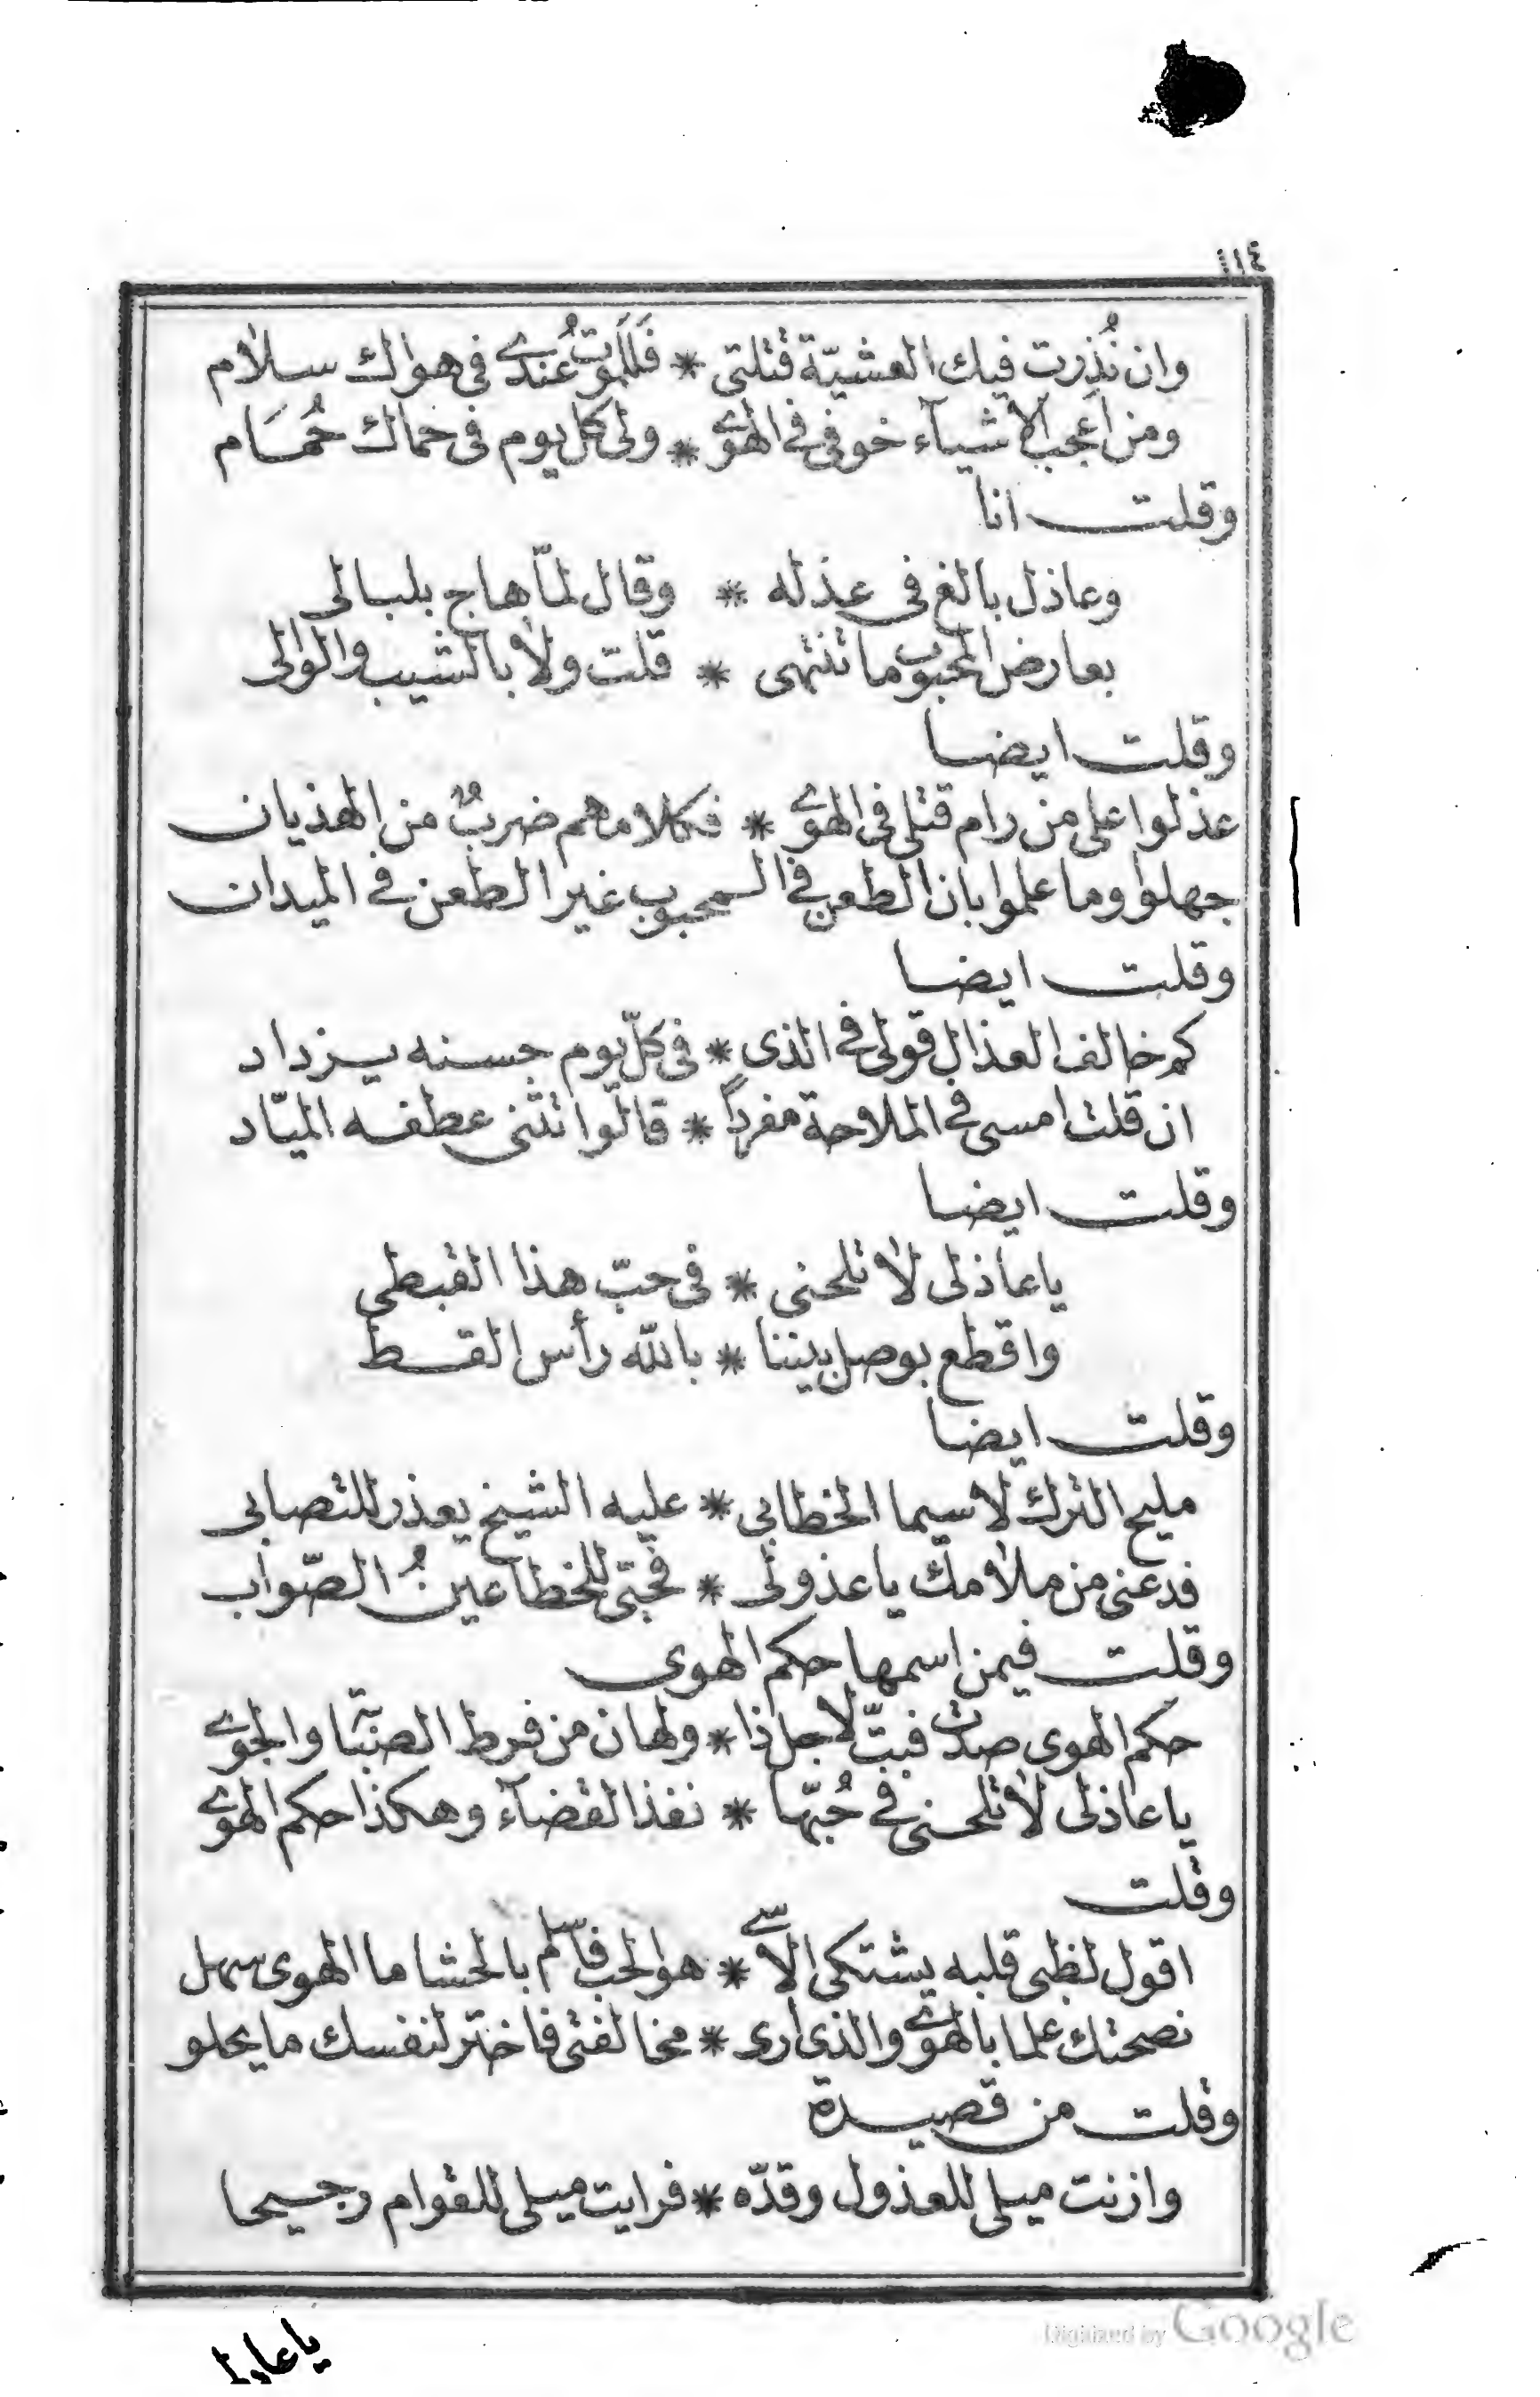 ١١٤
وان نُذِرت فيك العشيّة قتلتى * فَلَلموتُ عندى فى هواك سلام
ومن اعجب الأشيآء خوفى فى الهوى * ولى كل يوم فى حماك حُمَام
وقلت انا
وعاذل بالغ فى عذله * وقال لمّا هاج بلبالى
بعارض المحبوب ما تنتهى * قلت ولا بالشيب والوالى
وقلت ايضا
عذلوا على من رام قتلى فى الهوى * فكلامهم ضربٌ من الهذيان
جهلوا وما علموا بان الطعن فى المحبوب غير الطعن فى الميدان
وقلت ايضا
كم خالف العذال قولى فى الذى * فى كلّ يوم حسنه يزداد
ان قلت امسى فى الملاحة مفرداً * قالوا تثنى عطفه الميّاد
وقلت ايضا
يا عاذلى لا تلحنى * فى حبّ هذا القبطى
واقطع بوصل بيننا * بالله رأس القط
وقلت ايضا
مليح الترك لا سيما الخطابى * عليه الشيخ يعذر للتصابى
فدعنى من ملامك يا عذولى * فحبّى للخطا عينُ الصّواب
وقلت فيمن اسمها حكم الهوى
حكم الهوى صدّت فبتّ لاجل ذا * ولهان من فرط الصبّا والجوى
يا عاذلى لا تلحنى فى حُبّها * نفذ القضآء وهكذا حكم الهوى
وقلت
اقول لظبى قلبه يشتكى الأسى * هو الحب فاسلم بالحشا ما الهوى سهل
نصحتك علما بالهوى والذى أرى * مخالفتى فاختر لنفسك ما يحلو
وقلت من قصيدة
وازنت ميلى للعذول وقدّه * فرايت ميلى للقوام رجيحا
يا عاذلا
Digitized by Google